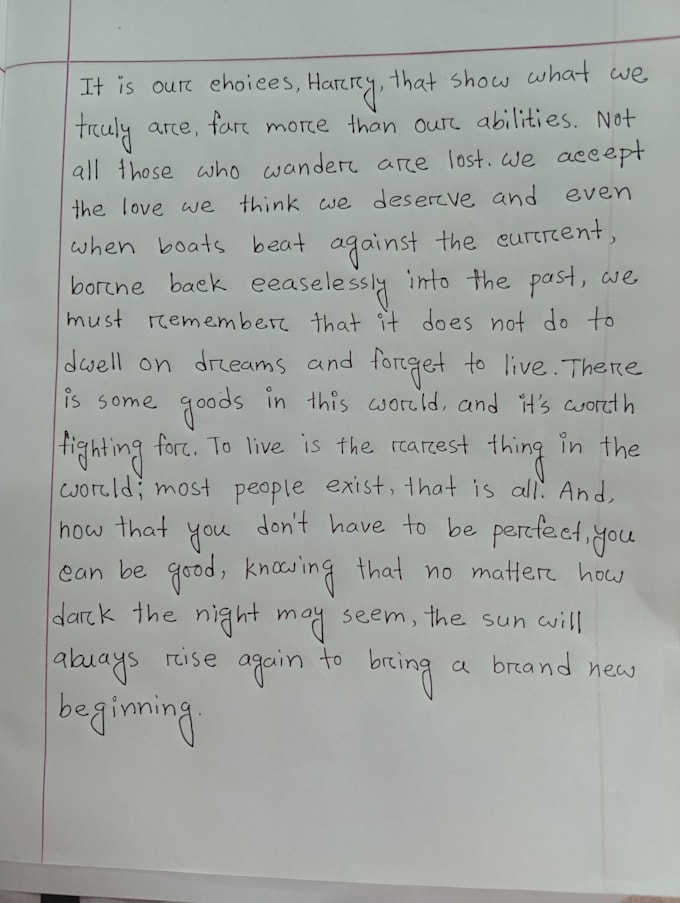 It is our choices, Harry, that show what we
truly are, far more than our abilities. Not
all those who wander are lost. We accept
the love we think we deserve and even
when boats beat against the current,
borne back ceaselessly into the past, we
must remember that it does not do to
dwell on dreams and forget to live. There
is some goods in this world, and it's worth
fighting for. To live is the rarest thing in the
world; most people exist, that is all. And,
now that you don't have to be perfect, you
can be good, knowing that no matter how
dark the night may seem, the sun will
always rise again to bring a brand new
beginning.